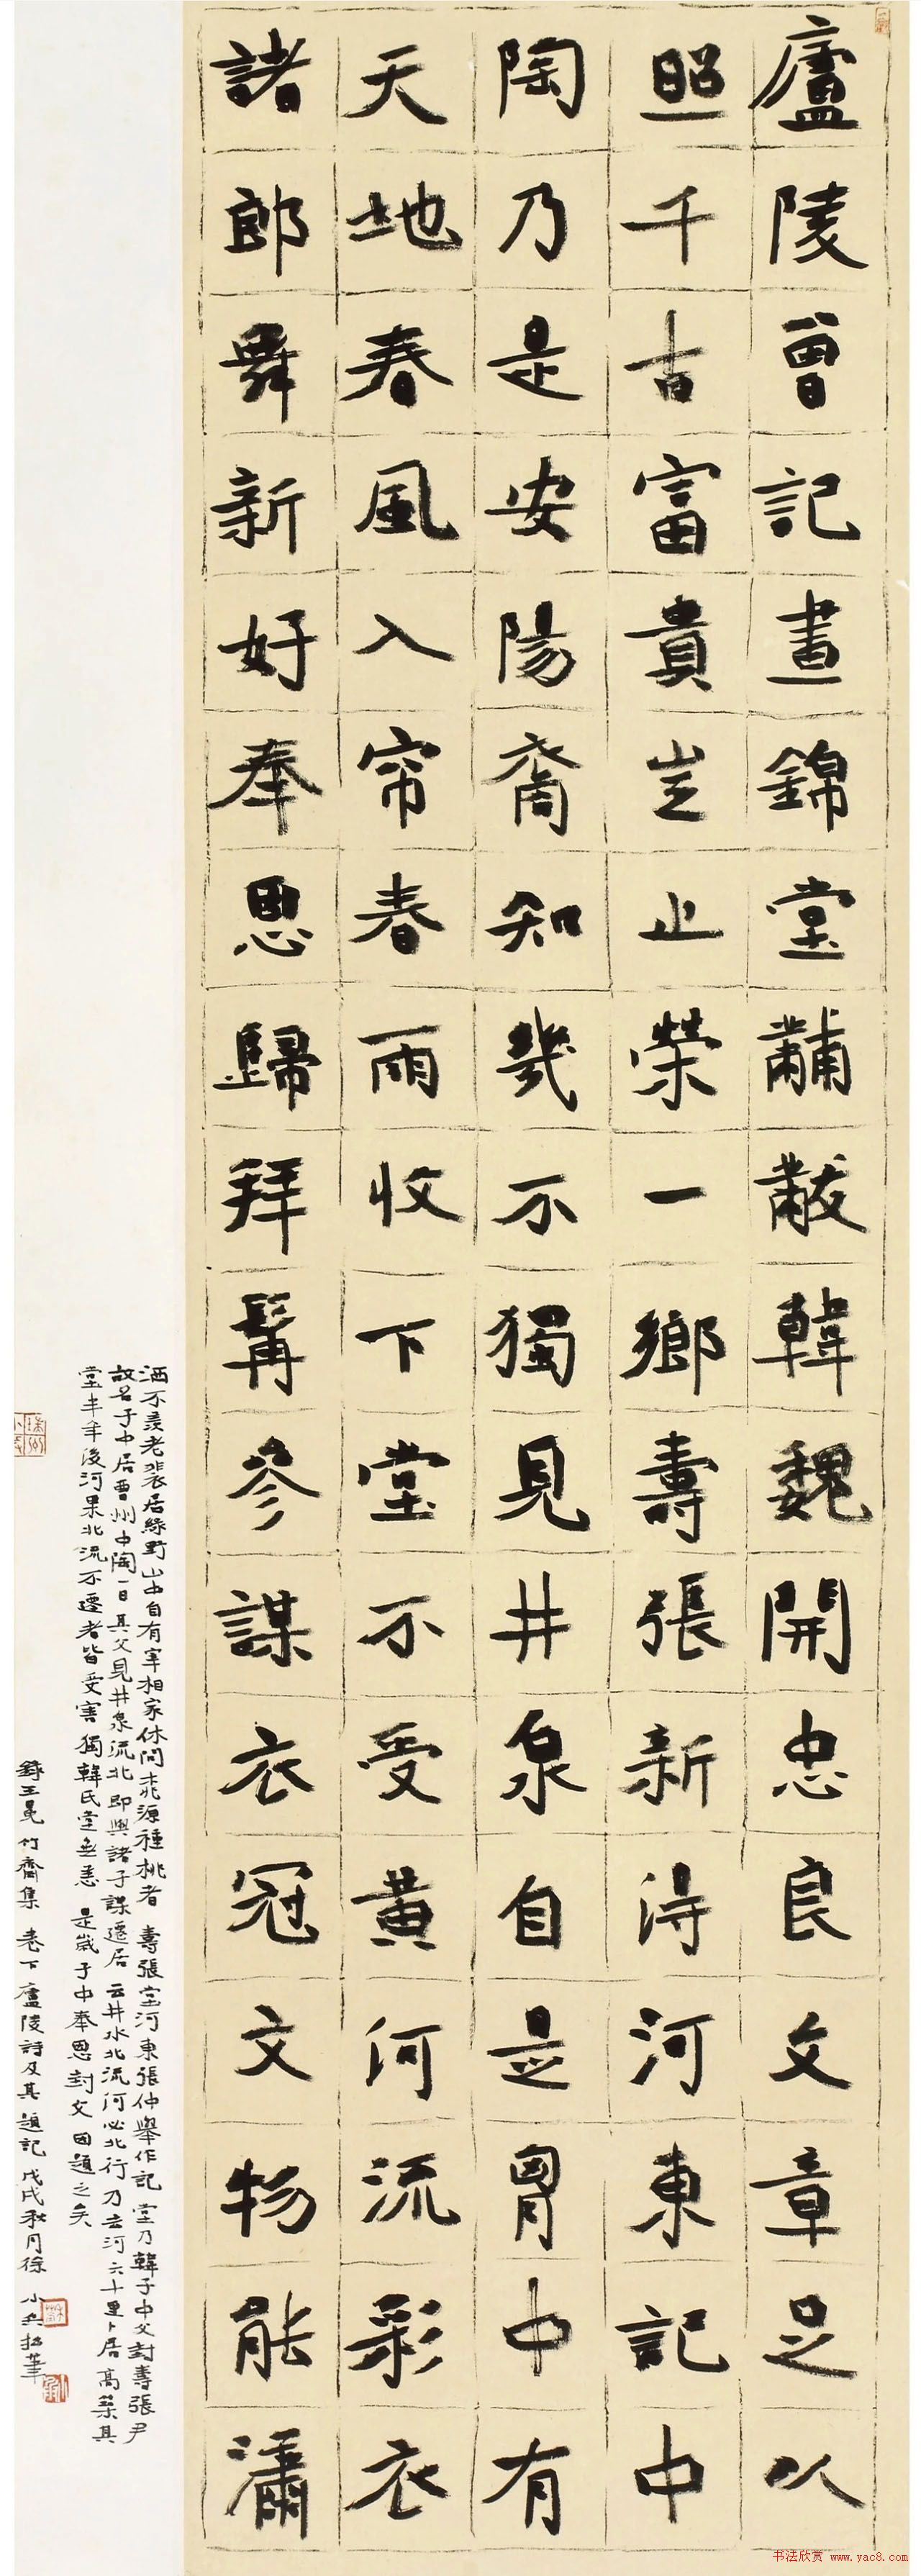 廬陵曾記晝錦堂黼黻韓魏開忠良文章足以
照千古富貴豈止榮一鄉壽張新得河東記中
陶乃是安陽裔知幾不獨見井泉自是胷中有
天地春風入帘春雨收下堂不受黃河流彩衣
諸郎舞新好奉恩歸拜髯參謀衣冠文物能瀟
洒不羨老裴居綠野山中自有宰相家休問桃源種桃者 壽張堂河東張仲舉作記 堂乃韓子中父封壽張尹
故名子中居曹州中陶一日其父見井泉流北即與諸子謀遷居云井水北流河必北行乃去河六十里卜居高築其
堂半年後河果北流不遷者皆受害獨韓氏堂無恙是歲子中奉恩封父因題之矣
錄王冕竹齋集卷下廬陵詩及其題記戊戌秋月徐小兵拈筆
书法欣赏 www.yac8.com